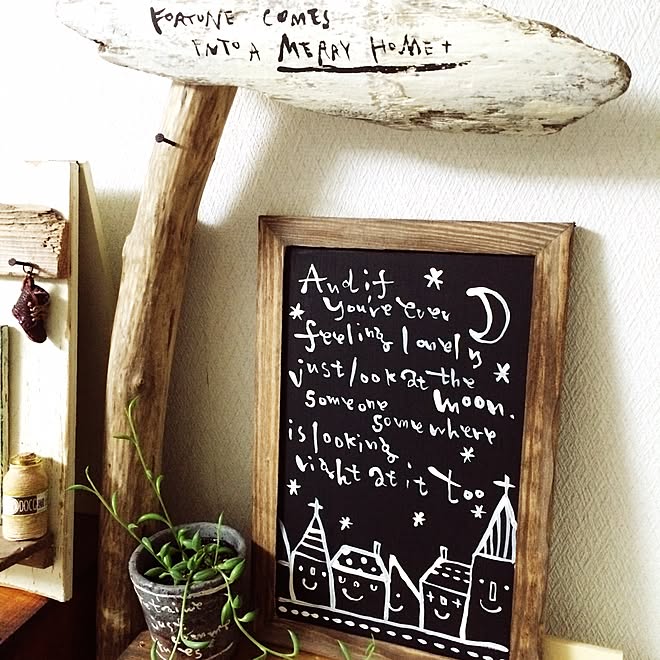 FORTUNE COMES
INTO A MERRY HOME+
And if
you're ever
feeling lonely
just look at the
moon.
someone
somewhere
is looking
right at it too